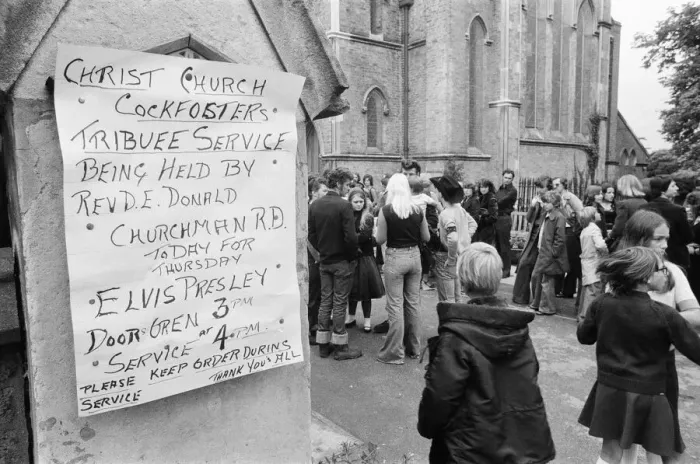 CHRIST CHURCH
COCKFOSTERS
TRIBUEE SERVICE
BEING HELD BY
REV D.E. DONALD
CHURCHMAN R.D.
TODAY FOR
THURSDAY
ELVIS PRESLEY
DOORS OREN 3 PM
SERVICE AT 4 PM.
PLEASE KEEP ORDER DURING
SERVICE THANK YOU'S ALL